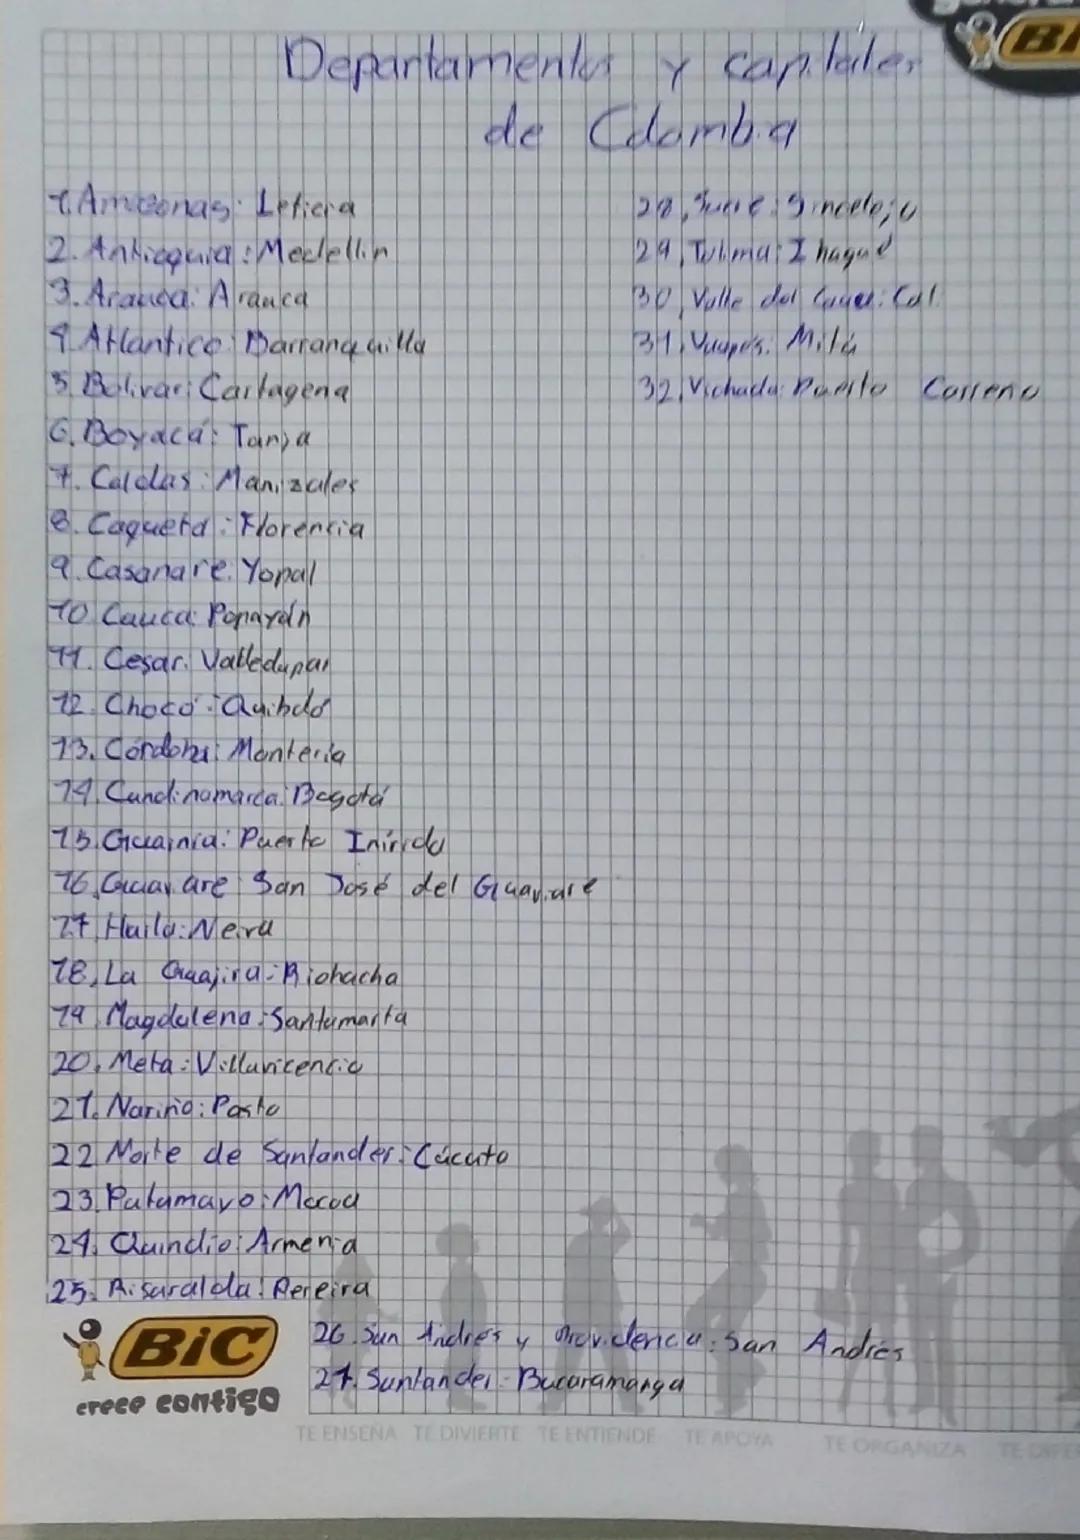 BIC
Departamentos y capitales
de Colombia
1. Amazonas: Leticia
2. Antioquia: Medellin
3. Arauca: Arauca
4. Atlantico: Barranquilla
5. Bolivar: Cartagena
6. Boyacá: Tunja
7. Caldas: Manizales
8. Caquetá: Florencia
9. Casanare: Yopal
10. Cauca: Popayán
11. Cesar: Valledupar
12. Chocó: Quibdó
13. Córdoba: Montería
14. Cundinamarca: Bogotá
15. Guainía: Puerto Inírida
16. Guaviare: San José del Guaviare
17. Huila: Neiva
18. La Guajira: Riohacha
19. Magdalena: Santamarta
20. Meta: Villavicencio
21. Nariño: Pasto
22. Norte de Santander: Cúcuta
23. Putumayo: Mocoa
24. Quindio: Armenia
25. Risaralda: Pereira
26. San Andrés y Providencia: San Andrés
27. Santander: Bucaramanga
28. Sucre: Sincelejo
29. Tolima: Ibagué
30. Valle del Cauca: Cali
31. Vaupés: Mitú
32. Vichada: Puerto Carreño
BIC
crece contigo
TE ENSEÑA TE DIVIERTE TE ENTIENDE TE APOYA TE ORGANIZA